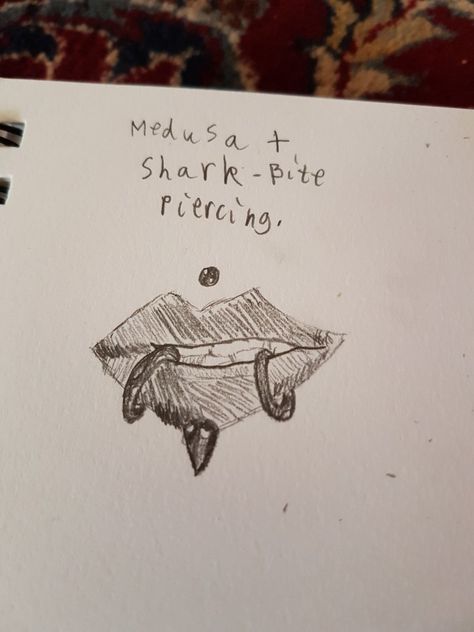 Medusa +
Shark-Bite
Piercing.